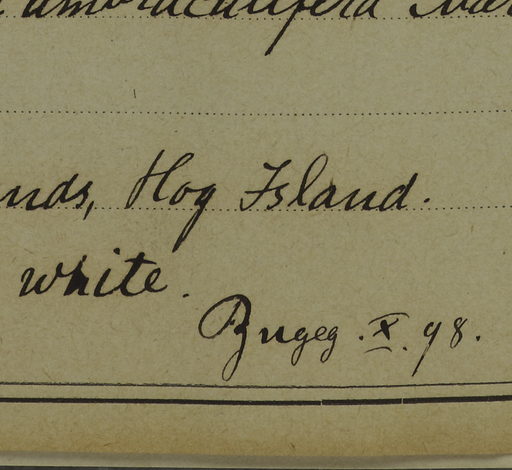 umbraculifera
nds, Hog Island.
white.
Bugeg. X. 98.